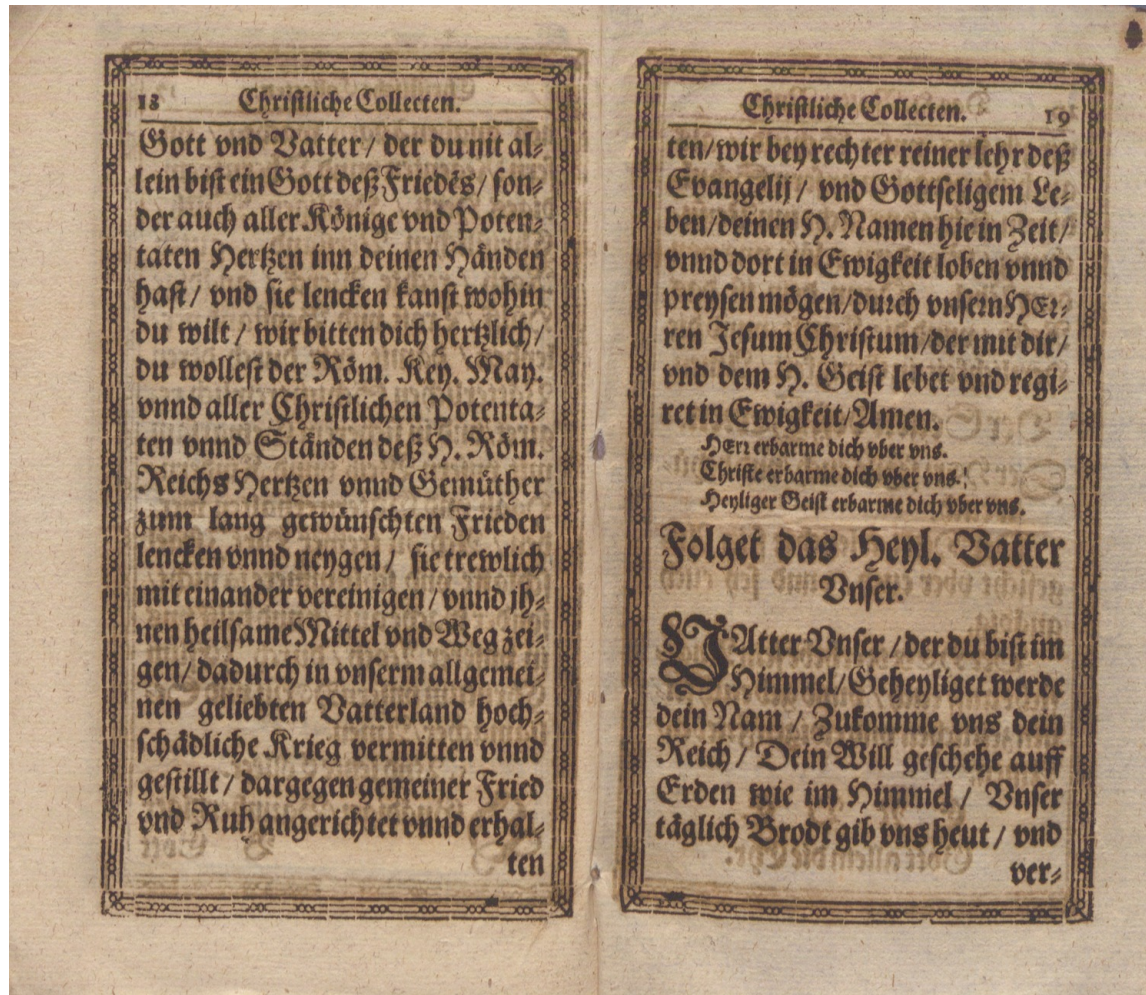 18 Christliche Collecten.
Gott vnd Vatter / der du nit al-
lein bist ein Gott deß Friedẽs / son-
der auch aller Könige vnd Poten-
taten Hertzen inn deinen Händen
hast / vnd sie lencken kanst wohin
du wilt / wir bitten dich hertzlich /
du wollest der Röm. Key. May.
vnnd aller Christlichen Potenta-
ten vnnd Ständen deß H. Röm.
Reichs Hertzen vnnd Gemüther
zum lang gewünschten Frieden
lencken vnnd neygen / sie trewlich
mit einander vereinigen / vnnd jh-
nen heilsame Mittel vnd Weg zei-
gen / dadurch in vnserm allgemei-
nen geliebten Vatterland hoch-
schädliche Krieg vermitten vnnd
gestillt / dargegen gemeiner Fried
vnd Ruh angerichtet vnnd erhal-
ten
Christliche Collecten. 19
ten / wir bey rechter reiner lehr deß
Evangelij / vnd Gottseligem Le-
ben / deinen H. Namen hie in Zeit /
vnnd dort in Ewigkeit loben vnnd
preysen mögen / durch vnsern HEr-
ren Jesum Christum / der mit dir /
vnd dem H. Geist lebet vnd regi-
ret in Ewigkeit / Amen.
HErr erbarme dich vber vns.
Christe erbarme dich vber vns.
Heyliger Geist erbarme dich vber vns.
Folget das Heyl. Vatter
Vnser.
VAtter Vnser / der du bist im
Himmel / Geheyliget werde
dein Nam / Zukomme vns dein
Reich / Dein Will geschehe auff
Erden wie im Himmel / Vnser
täglich Brodt gib vns heut / vnd
ver-